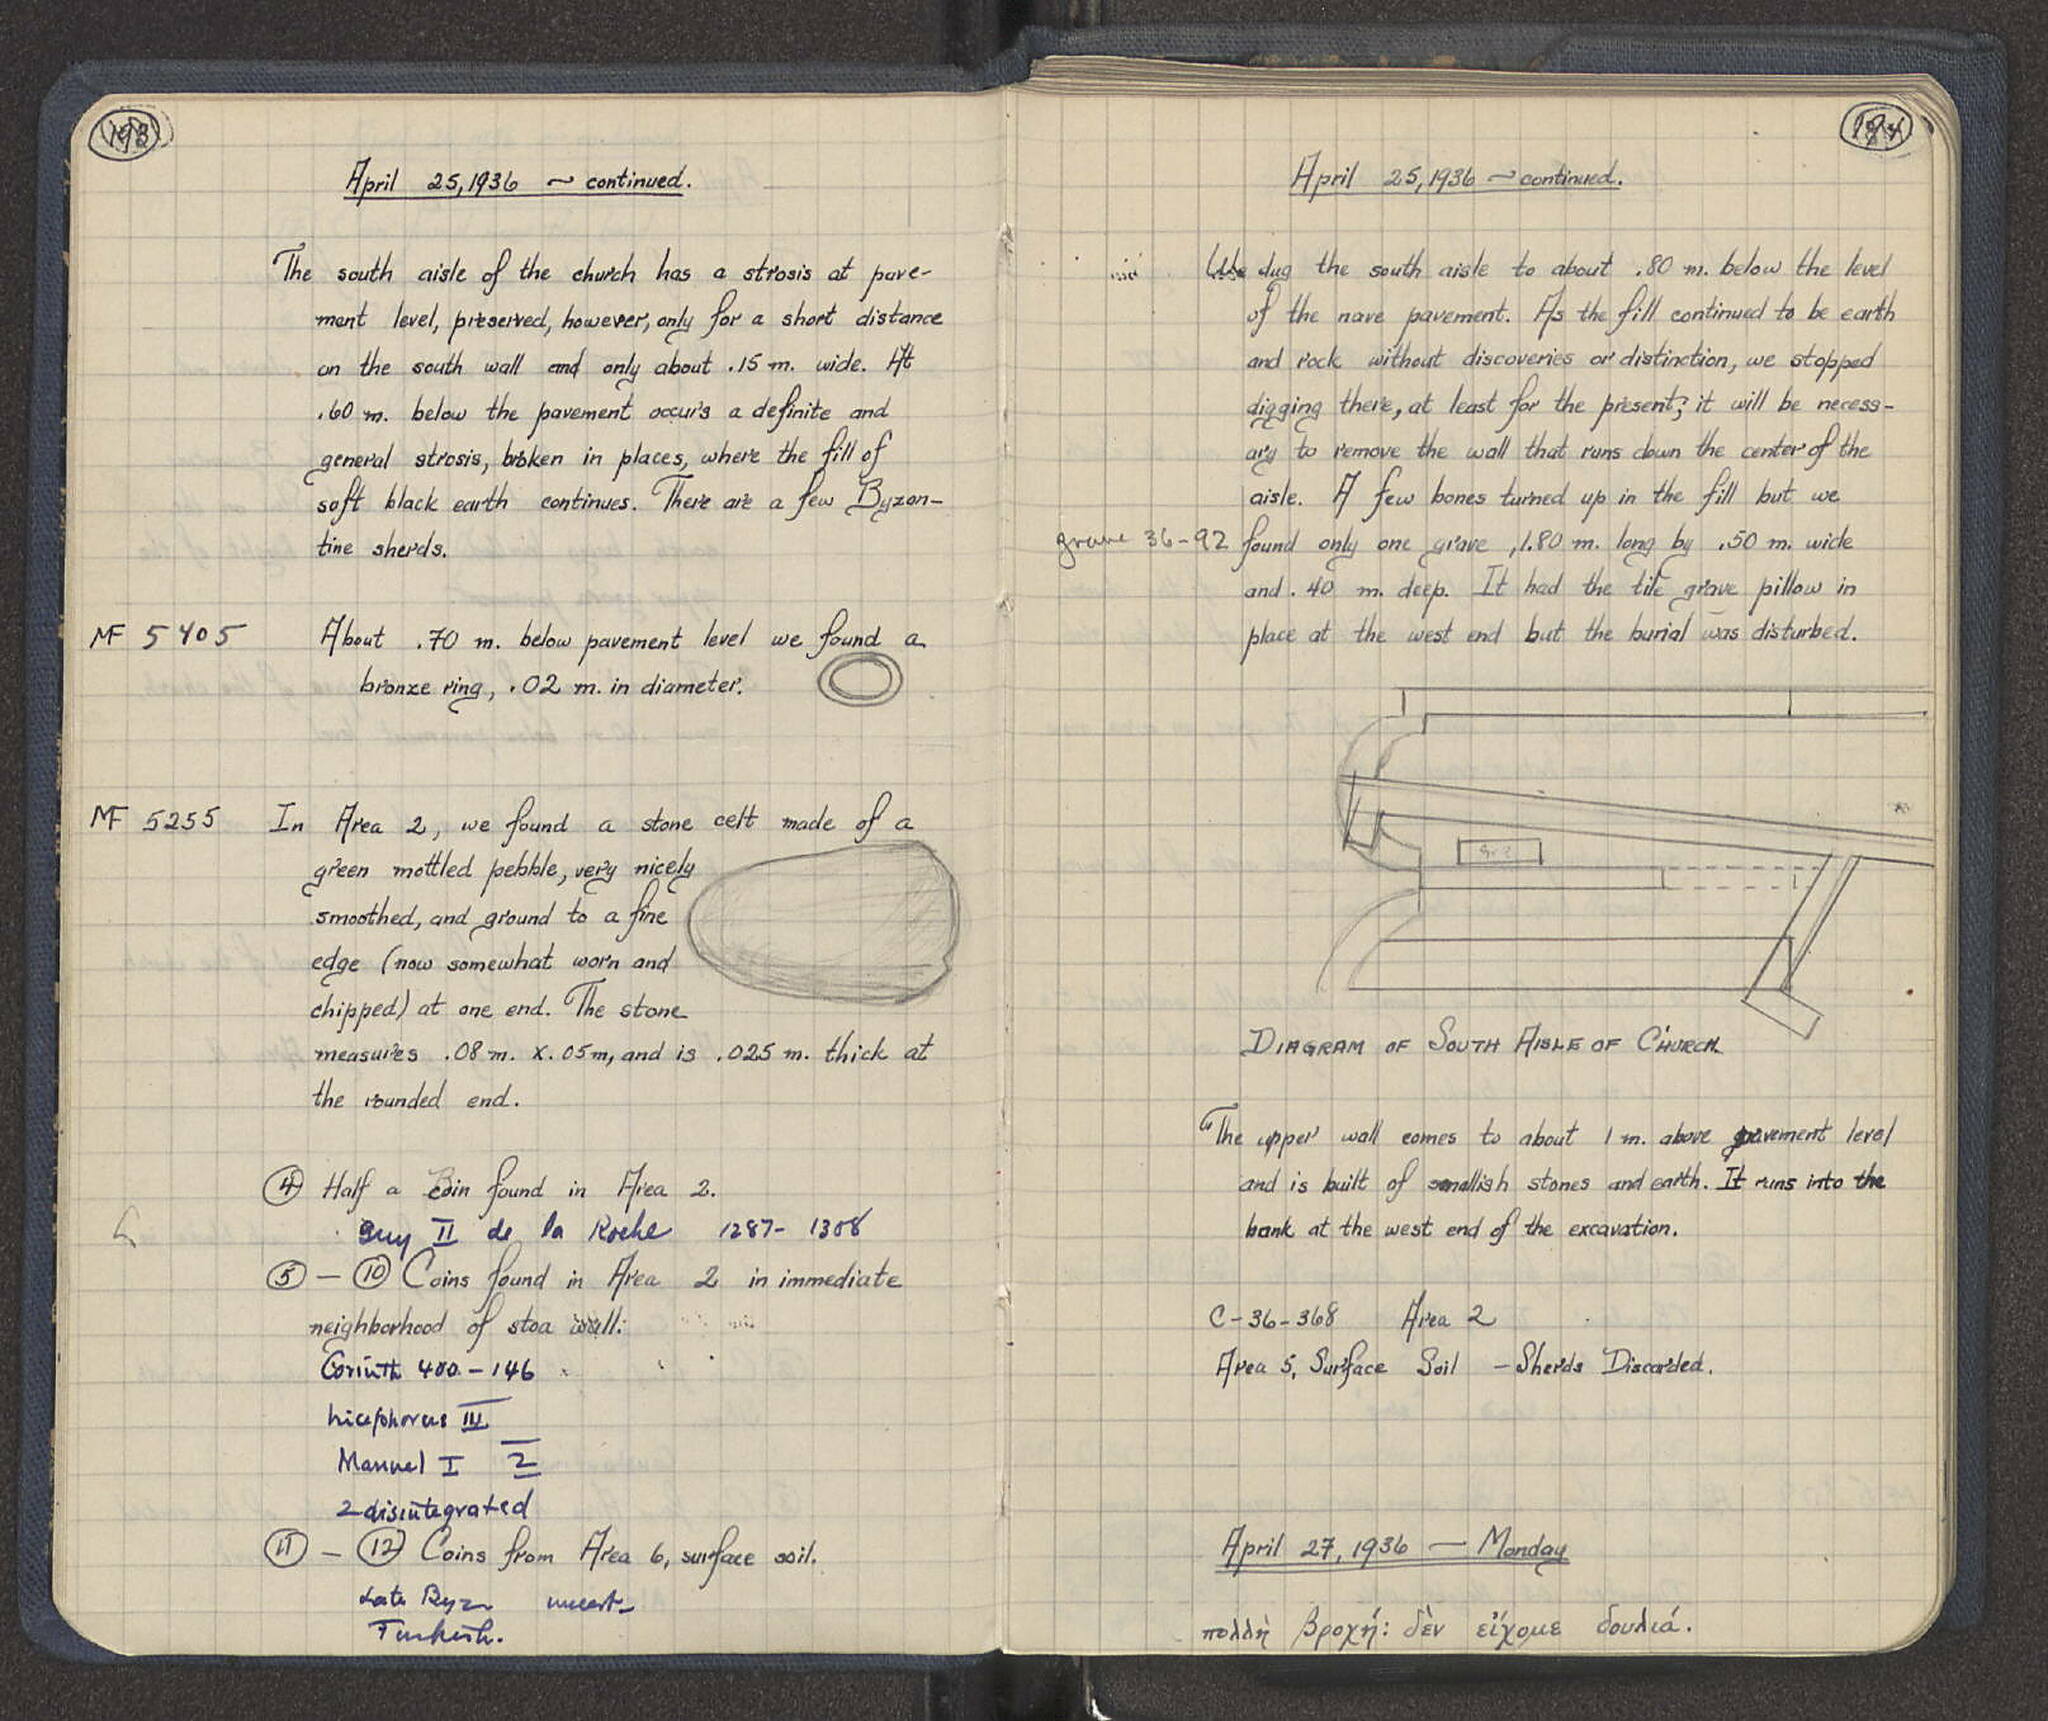 193
April 25, 1936 ~ continued.
The south aisle of the church has a strosis at pave-
ment level, preserved, however, only for a short distance
on the south wall and only about .15 m. wide. At
.60 m. below the pavement occurs a definite and
general strosis, broken in places, where the fill of
soft black earth continues. There are a few Byzan-
tine sherds.
MF 5405 About .70 m. below pavement level we found a
bronze ring, .02 m. in diameter.
MF 5255 In Area 2, we found a stone celt made of a
green mottled pebble, very nicely
smoothed, and ground to a fine
edge (now somewhat worn and
chipped) at one end. The stone
measures .08 m. x .05 m, and is .025 m. thick at
the rounded end.
④ Half a Coin found in Area 2.
Guy II de la Roche 1287- 1308
⑤ — ⑩ Coins found in Area 2 in immediate
neighborhood of stoa wall:
Corinth 400 - 146
Nicephorus III
Manuel I 2
2 disintegrated
⑪ — ⑫ Coins from Area 6, surface soil.
Late Byz uncert.
Turkish.
194
April 25, 1936 ~ continued.
We dug the south aisle to about .80 m. below the level
of the nave pavement. As the fill continued to be earth
and rock without discoveries or distinction, we stopped
digging there, at least for the present; it will be necess-
ary to remove the wall that runs down the center of the
aisle. A few bones turned up in the fill but we
grave 36-92 found only one grave, 1.80 m. long by .50 m. wide
and .40 m. deep. It had the tile grave pillow in
place at the west end but the burial was disturbed.
DIAGRAM OF SOUTH AISLE OF CHURCH.
The upper wall comes to about 1 m. above pavement level
and is built of smallish stones and earth. It runs into the
bank at the west end of the excavation.
C-36-368 Area 2
Area 5, Surface Soil — Sherds Discarded.
April 27, 1936 — Monday
πολλὴ βροχή: δὲν εἴχομε δουλιά.